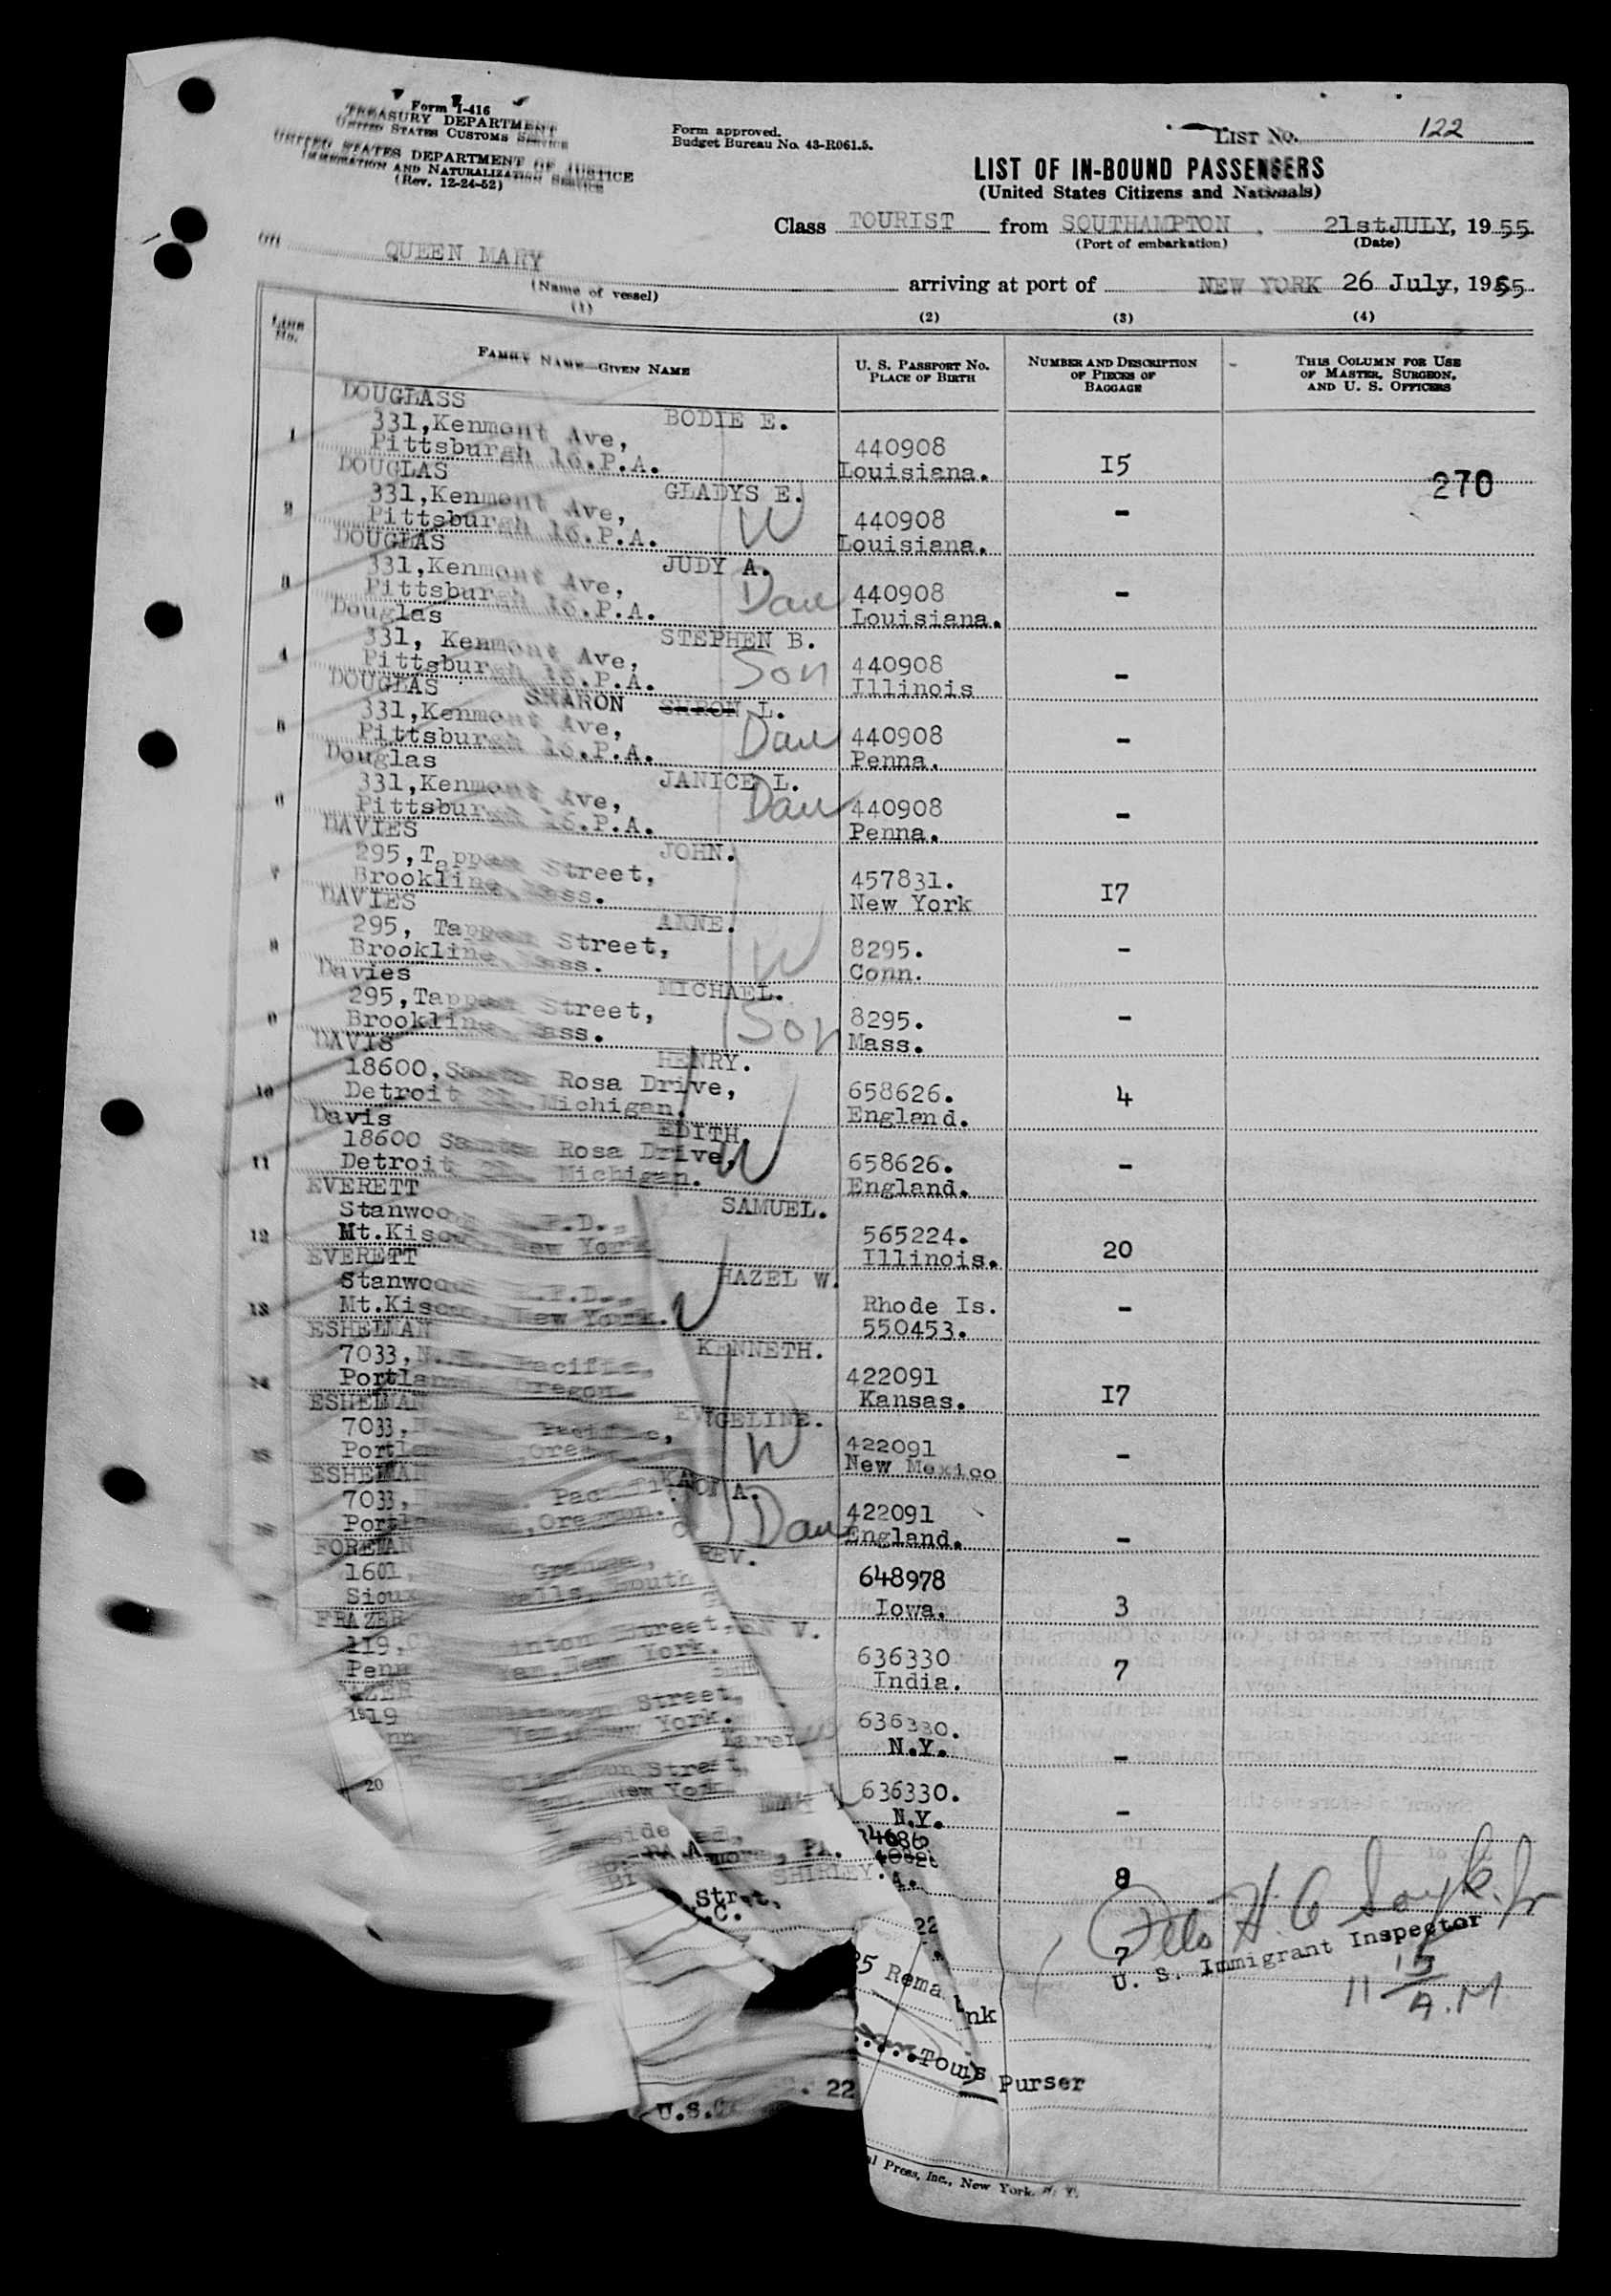 Form I-416
TREASURY DEPARTMENT
UNITED STATES CUSTOMS SERVICE
UNITED STATES DEPARTMENT OF JUSTICE
IMMIGRATION AND NATURALIZATION SERVICE
(Rev. 12-24-52)
Form approved.
Budget Bureau No. 43-R061.5.
LIST NO. 122
LIST OF IN-BOUND PASSENGERS
(United States Citizens and Nationals)
Class TOURIST from SOUTHAMPTON, 21st JULY, 1955
(Port of embarkation) (Date)
on QUEEN MARY arriving at port of NEW YORK 26 July, 1955
(Name of vessel)
(1) (2) (3) (4)
LINE NO.
FAMILY NAME—GIVEN NAME
U. S. PASSPORT NO.
PLACE OF BIRTH
NUMBER AND DESCRIPTION
OF PIECES OF
BAGGAGE
THIS COLUMN FOR USE
OF MASTER, SURGEON,
AND U. S. OFFICERS
DOUGLASS BODIE E.
1 331,Kenmont Ave, 440908
Pittsburgh 16.P.A. Louisiana. 15
270
DOUGLAS GLADYS E.
2 331,Kenmont Ave, W 440908 -
Pittsburgh 16.P.A. Louisiana.
DOUGLAS JUDY A.
3 331,Kenmont Ave, Dau 440908 -
Pittsburgh 16.P.A. Louisiana.
Douglas STEPHEN B.
4 331, Kenmont Ave, Son 440908 -
Pittsburgh 16.P.A. Illinois
DOUGLAS SHARON SHRON L.
5 331,Kenmont Ave, Dau 440908 -
Pittsburgh 16.P.A. Penna.
Douglas JANICE L.
6 331,Kenmont Ave, Dau 440908 -
Pittsburgh 16.P.A. Penna.
DAVIES JOHN.
7 295,Tappan Street, 457831. 17
Brookline, Mass. New York
DAVIES ANNE.
8 295, Tappan Street, W 8295. -
Brookline, Mass. Conn.
Davies MICHAEL.
9 295,Tappan Street, Son 8295. -
Brookline, Mass. Mass.
DAVIS HENRY.
10 18600,Santa Rosa Drive, 658626. 4
Detroit 21. Michigan. England.
Davis EDITH.
11 18600 Santa Rosa Drive, W 658626. -
Detroit 21. Michigan. England.
EVERETT SAMUEL.
12 Stanwood R.F.D., 565224. 20
Mt.Kisco, New York Illinois.
EVERETT HAZEL W.
13 Stanwood R.F.D., W Rhode Is. -
Mt.Kisco, New York. 550453.
ESHELMAN KENNETH.
14 7033,N.E. Pacific, 422091 17
Portland, Oregon Kansas.
ESHELMAN EVGELINE.
15 7033, Pacific, W 422091 -
Portland, Oregon New Mexico
ESHELMAN A.
16 7033, Pacific Dau 422091 -
Portland, Oregon. England.
FOREMAN REV.
1601, Grange, 648978 3
Sioux Falls, South Iowa.
FRAZER V.
119, Clinton Street, 636330 7
Penn Yan, New York. India.
119 Clinton Street, 636330. -
Yan, New York. N.Y.
Karen
20 Clinton Street, 636330. -
New York N.Y.
PA. 8
SHIRLEY. A.
Street, 22 7
U. S. Immigrant Inspector
11 15/A.M
Purser
22
U.S.
Press, Inc., New York, N. Y.